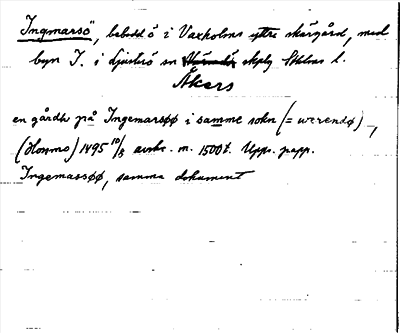 Ingmarsö, bebodd ö i Vaxholms yttre skärgård, med
byn I. i Ljusterö sn skplg Sthlms l.
Åkers
en gårdh på Ingemarsøø i samme sokn (= werendø) –,
(Hornmo) 1495 10/8 avskr. m. 1500t. Upps. papp.
Ingemassøø, samma dokument